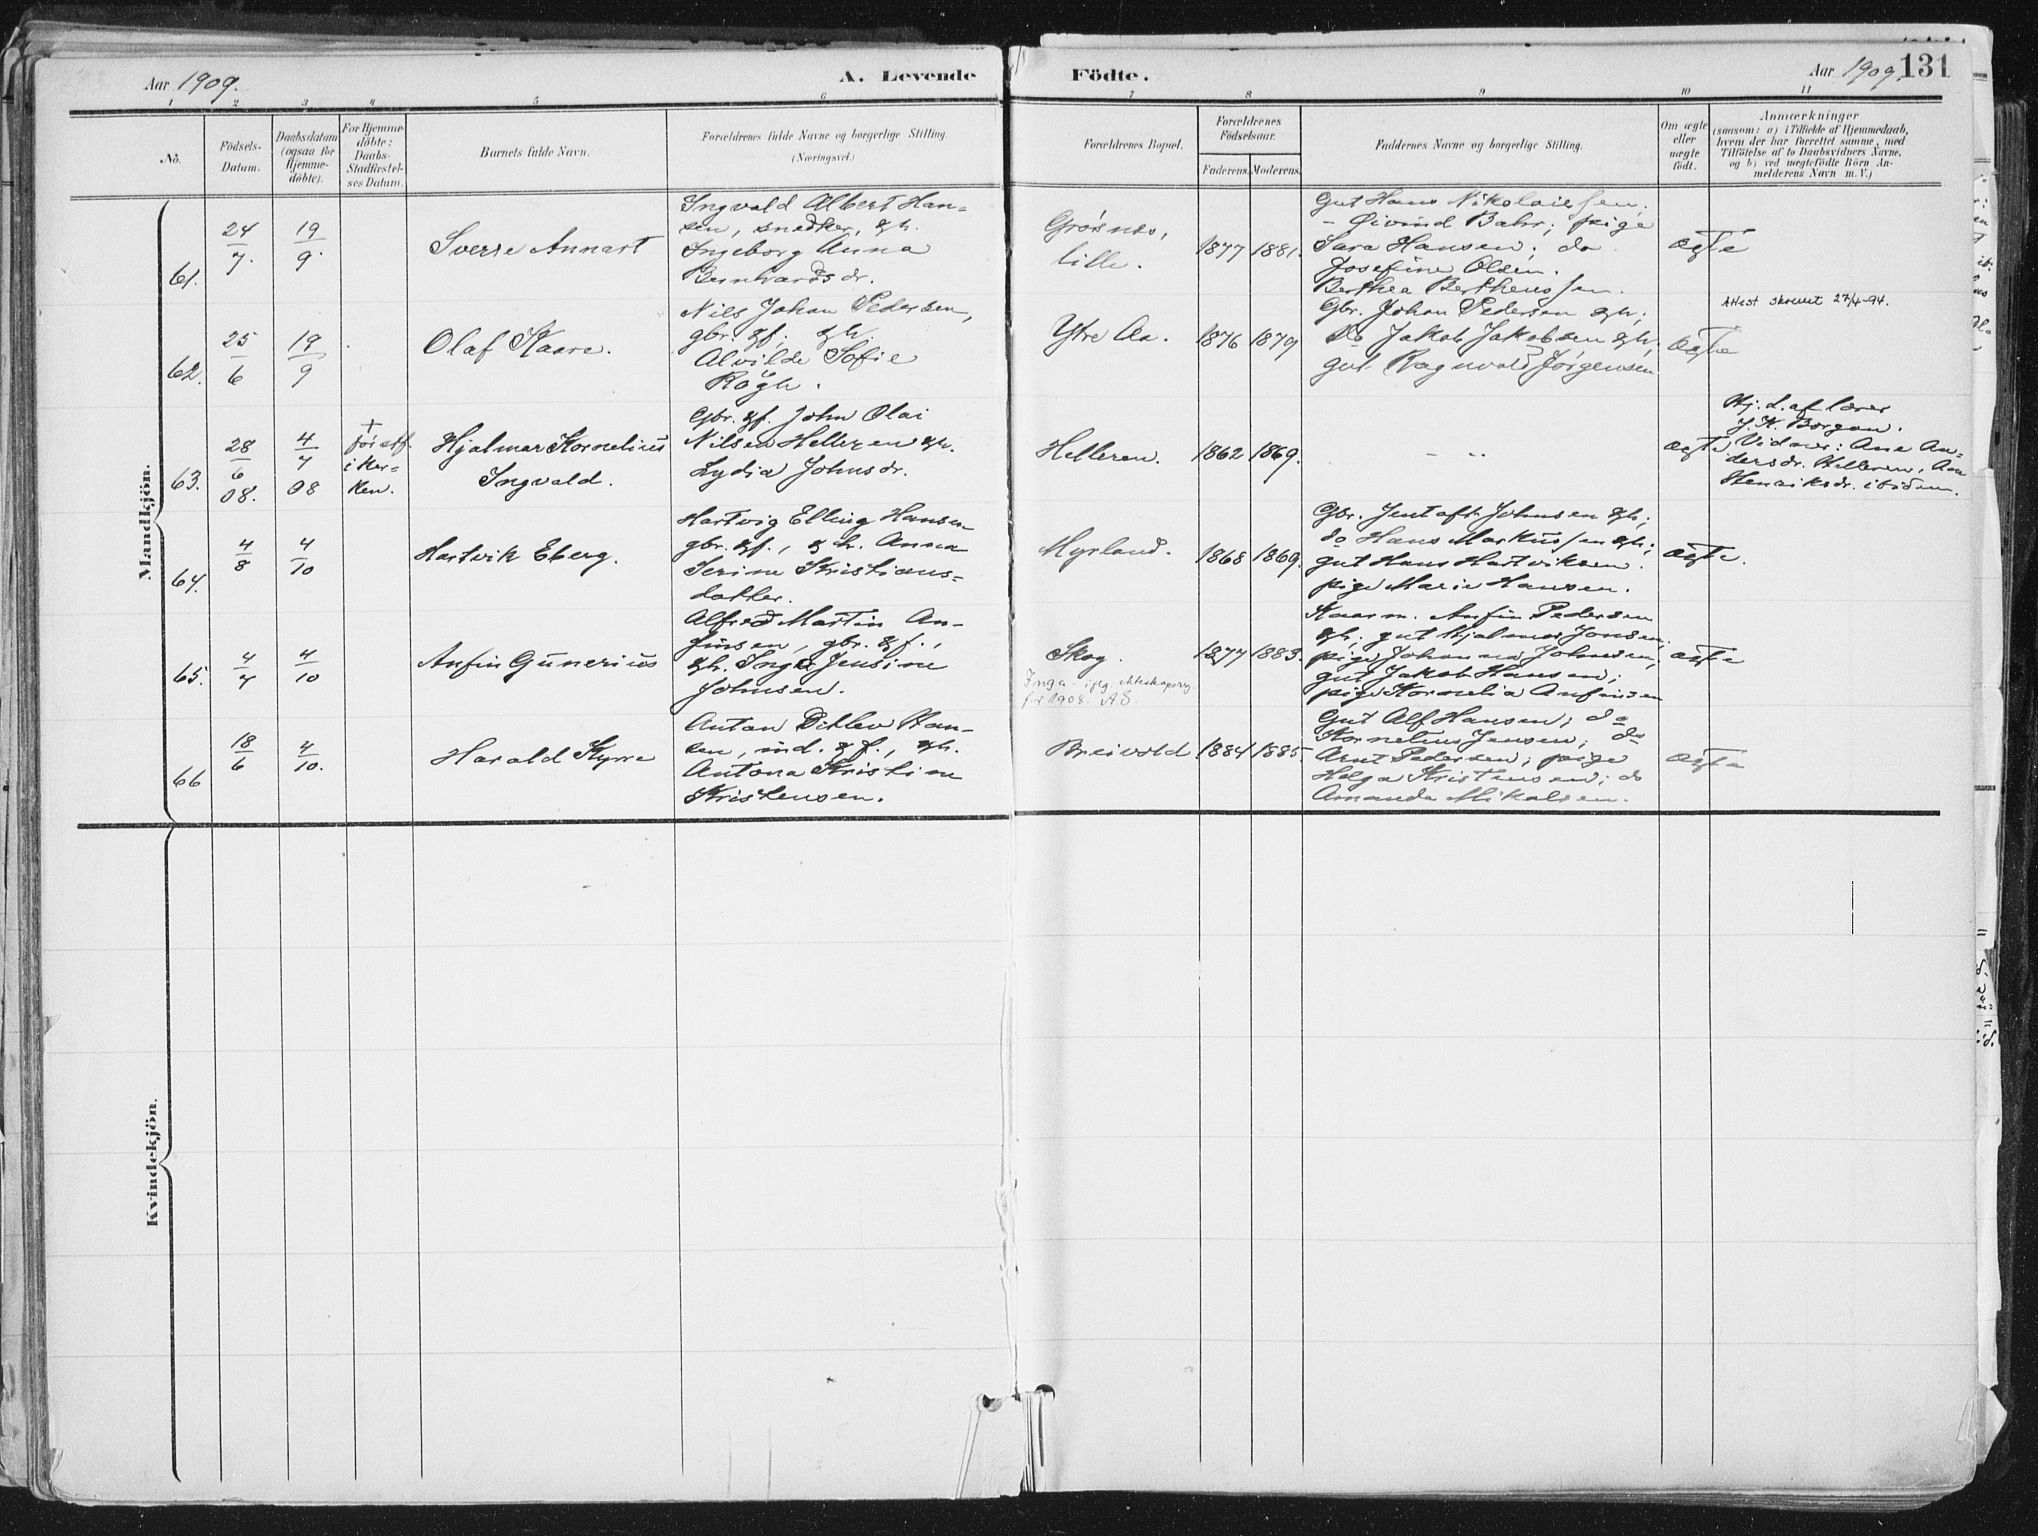 Aar 1909. A. Levende Födte. Aar 1909. 131
1 2 3 4 5 6 7 8 9 10 11
No.
Födsels-
Datum.
Daabsdatum
(ogsaa for
Hjemme-
döbte).
For Hjemme-
döbte:
Daabs-
Stadfæstel-
ses Datum.
Barnets fulde Navn.
Forældrenes fulde Navne og borgerlige Stilling.
(Næringsvei.)
Forældrenes Bopæl.
Forældrenes
Födselsaar.
Faderens. Moderens.
Faddernes Navne og borgerlige Stilling.
Om ægte
eller
uægte
födt.
Anmærkninger
(saasom: a) i Tilfælde af Hjemmedaab,
hvem der har forrettet samme, med
Tilföielse af to Daabsvidners Navne,
og b) ved uægtefödte Börn An-
melderens Navn m. V.)
Mandkjön.
61.
24/7.
19/9.
Sverre Annart
Ingvald Albert Han-
sen, snedker, & h.
Ingeborg Anna
Bernhardsdr.
Grøsnes,
lille.
1877 1881.
Gut Hans Nikolaisen;
- Øivind Bahr; pige
Sara Hansen; do
Josefine Olsen.
Berthea Bertheussen.
ægte
62.
25/6
19/9
Olaf Kaare.
Nils Johan Pedersen,
gbr. & f; & h.
Alvilde Sofie
Røgh.
Ytre Aa.
1876 1879
Gbr. Johan Pedersen & h;
Do Jakob Jakobsen & h;
gut Ragnvald Jørgensen
ægte
Attest skrevet 27/4-94.
63.
28/6 08.
4/7 08
+
før stf.
i kir-
ken.
Hjalmar Kornelius
Ingvald.
Gbr. & f. John Olai
Nilsen Helleren & h.
Lydia Johnsdr.
Helleren.
1862 1869.
- "
ægte
Hj. d. af lærer
J. K. Borgan.
Vidner: Ane An-
dersdr. Helleren, Ane
Henriksdr. ibidem.
64.
4/8
4/10
Hartvik Eberg.
Hartvig Elling Hansen
gbr. & f., & h. Anna
Serine Kristians-
datter.
Myrland.
1868 1869.
Gbr. Jentoft Johnsen & h;
do Hans Markussen & h;
gut Hans Hartviksen.
pige Marie Hansen.
ægte.
65.
4/7
4/10
Anfin Gunerius
Alfred Martin An-
finsen, gbr. & f.,
& h. Inga Jensine
Johnsen.
Skog.
Inga i flg. ekteskapsreg
før 1908. A.S.
1877 1883.
Kaarm. Anfin Pedersen
& h; gut Hjalmar Jonsen;
pige Johanna Johnsen;
gut Jakob Hansen;
pige Kornelia Anfinsen
ægte
66
18/6
4/10.
Harald Kyrre
Anton Ditlev Han-
sen, ind. & f., & h.
Antona Kristine
Kristensen.
Breivold
1884 1885
Gut Alf Hansen; do
Kornelius Jensen; do
Arnt Pedersen; pige
Helga Kristensen; do
Amanda Mikalsen.
ægte
Kvindekjön.